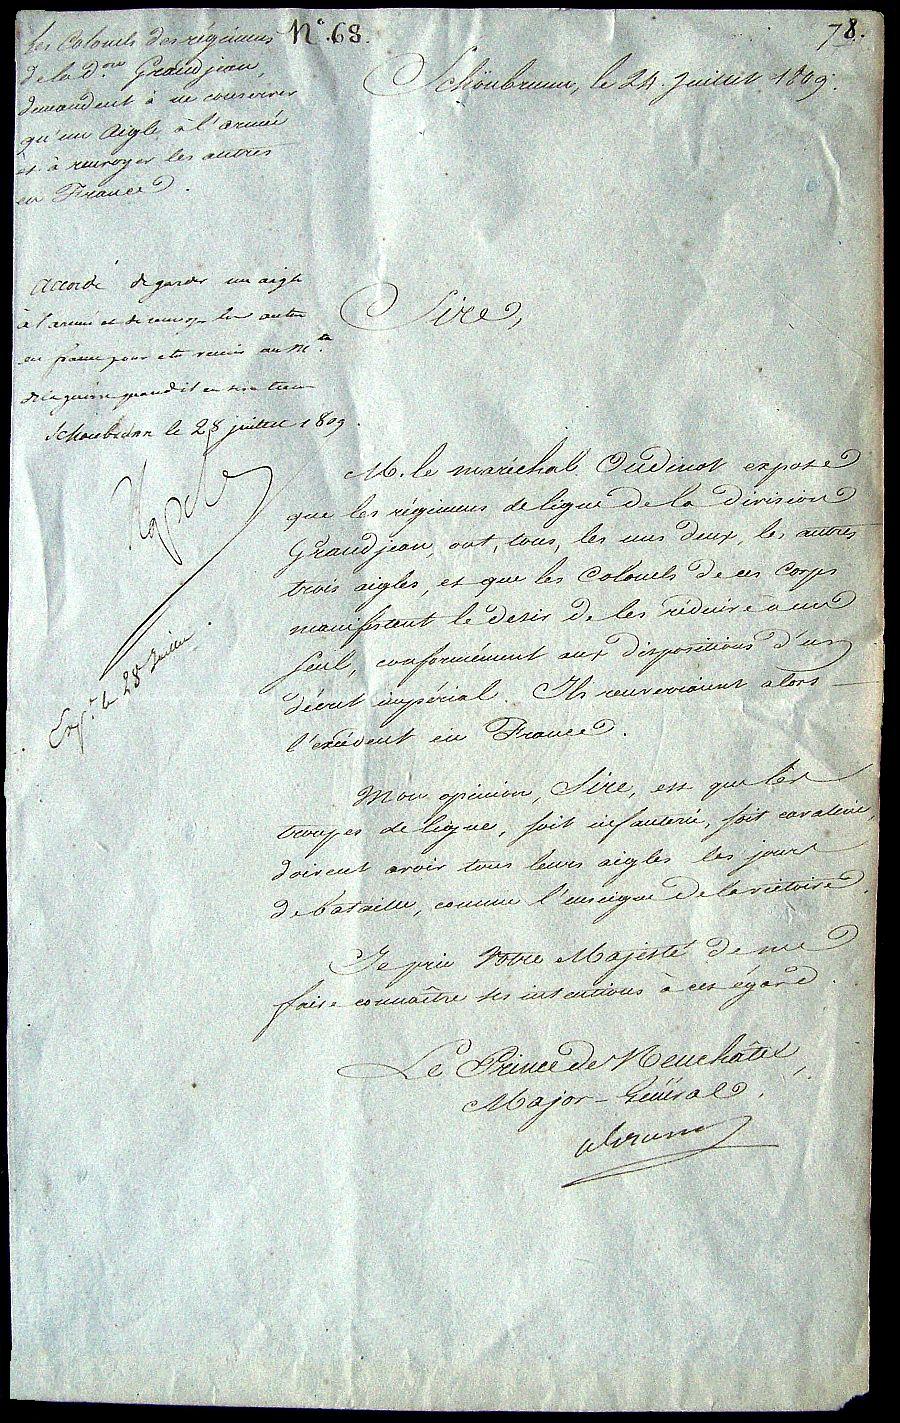 Nº. 68.
78.
Les Colonels des régimens
de la d.on Grandjean,
demandent à ne conserver
qu'un Aigle à l'armée
et à renvoyer les autres
en France.
Schönbrunn, le 24. Juillet 1809.
Accordé de garder un aigle
à l'armée et de renvoyer les autres
en france pour etre remis au M.
de la guerre
Schönbrunn le 28 juillet 1809.
Exp. le 28 Juillet.
Sire,
M. le maréchal Oudinot expose
que les régimens de ligne de la division
Grandjean, ont, tous, les uns deux, les autres
trois aigles, et que les Colonels de ces Corps
manifestent le desir de les réduire à un
seul, conformément aux dispositions d'un
décret impérial. Ils renverraient alors
l'excédent en France.
Mon opinion, Sire, est que les
troupes de ligne, soit infanterie, soit cavalerie,
doivent avoir tous leurs aigles les jours
de bataille, comme l'enseigne de la victoire.
Je prie Votre Majesté de me
faire connaître ses intentions à cet égard.
Le Prince de Neuchâtel,
Major-Général.